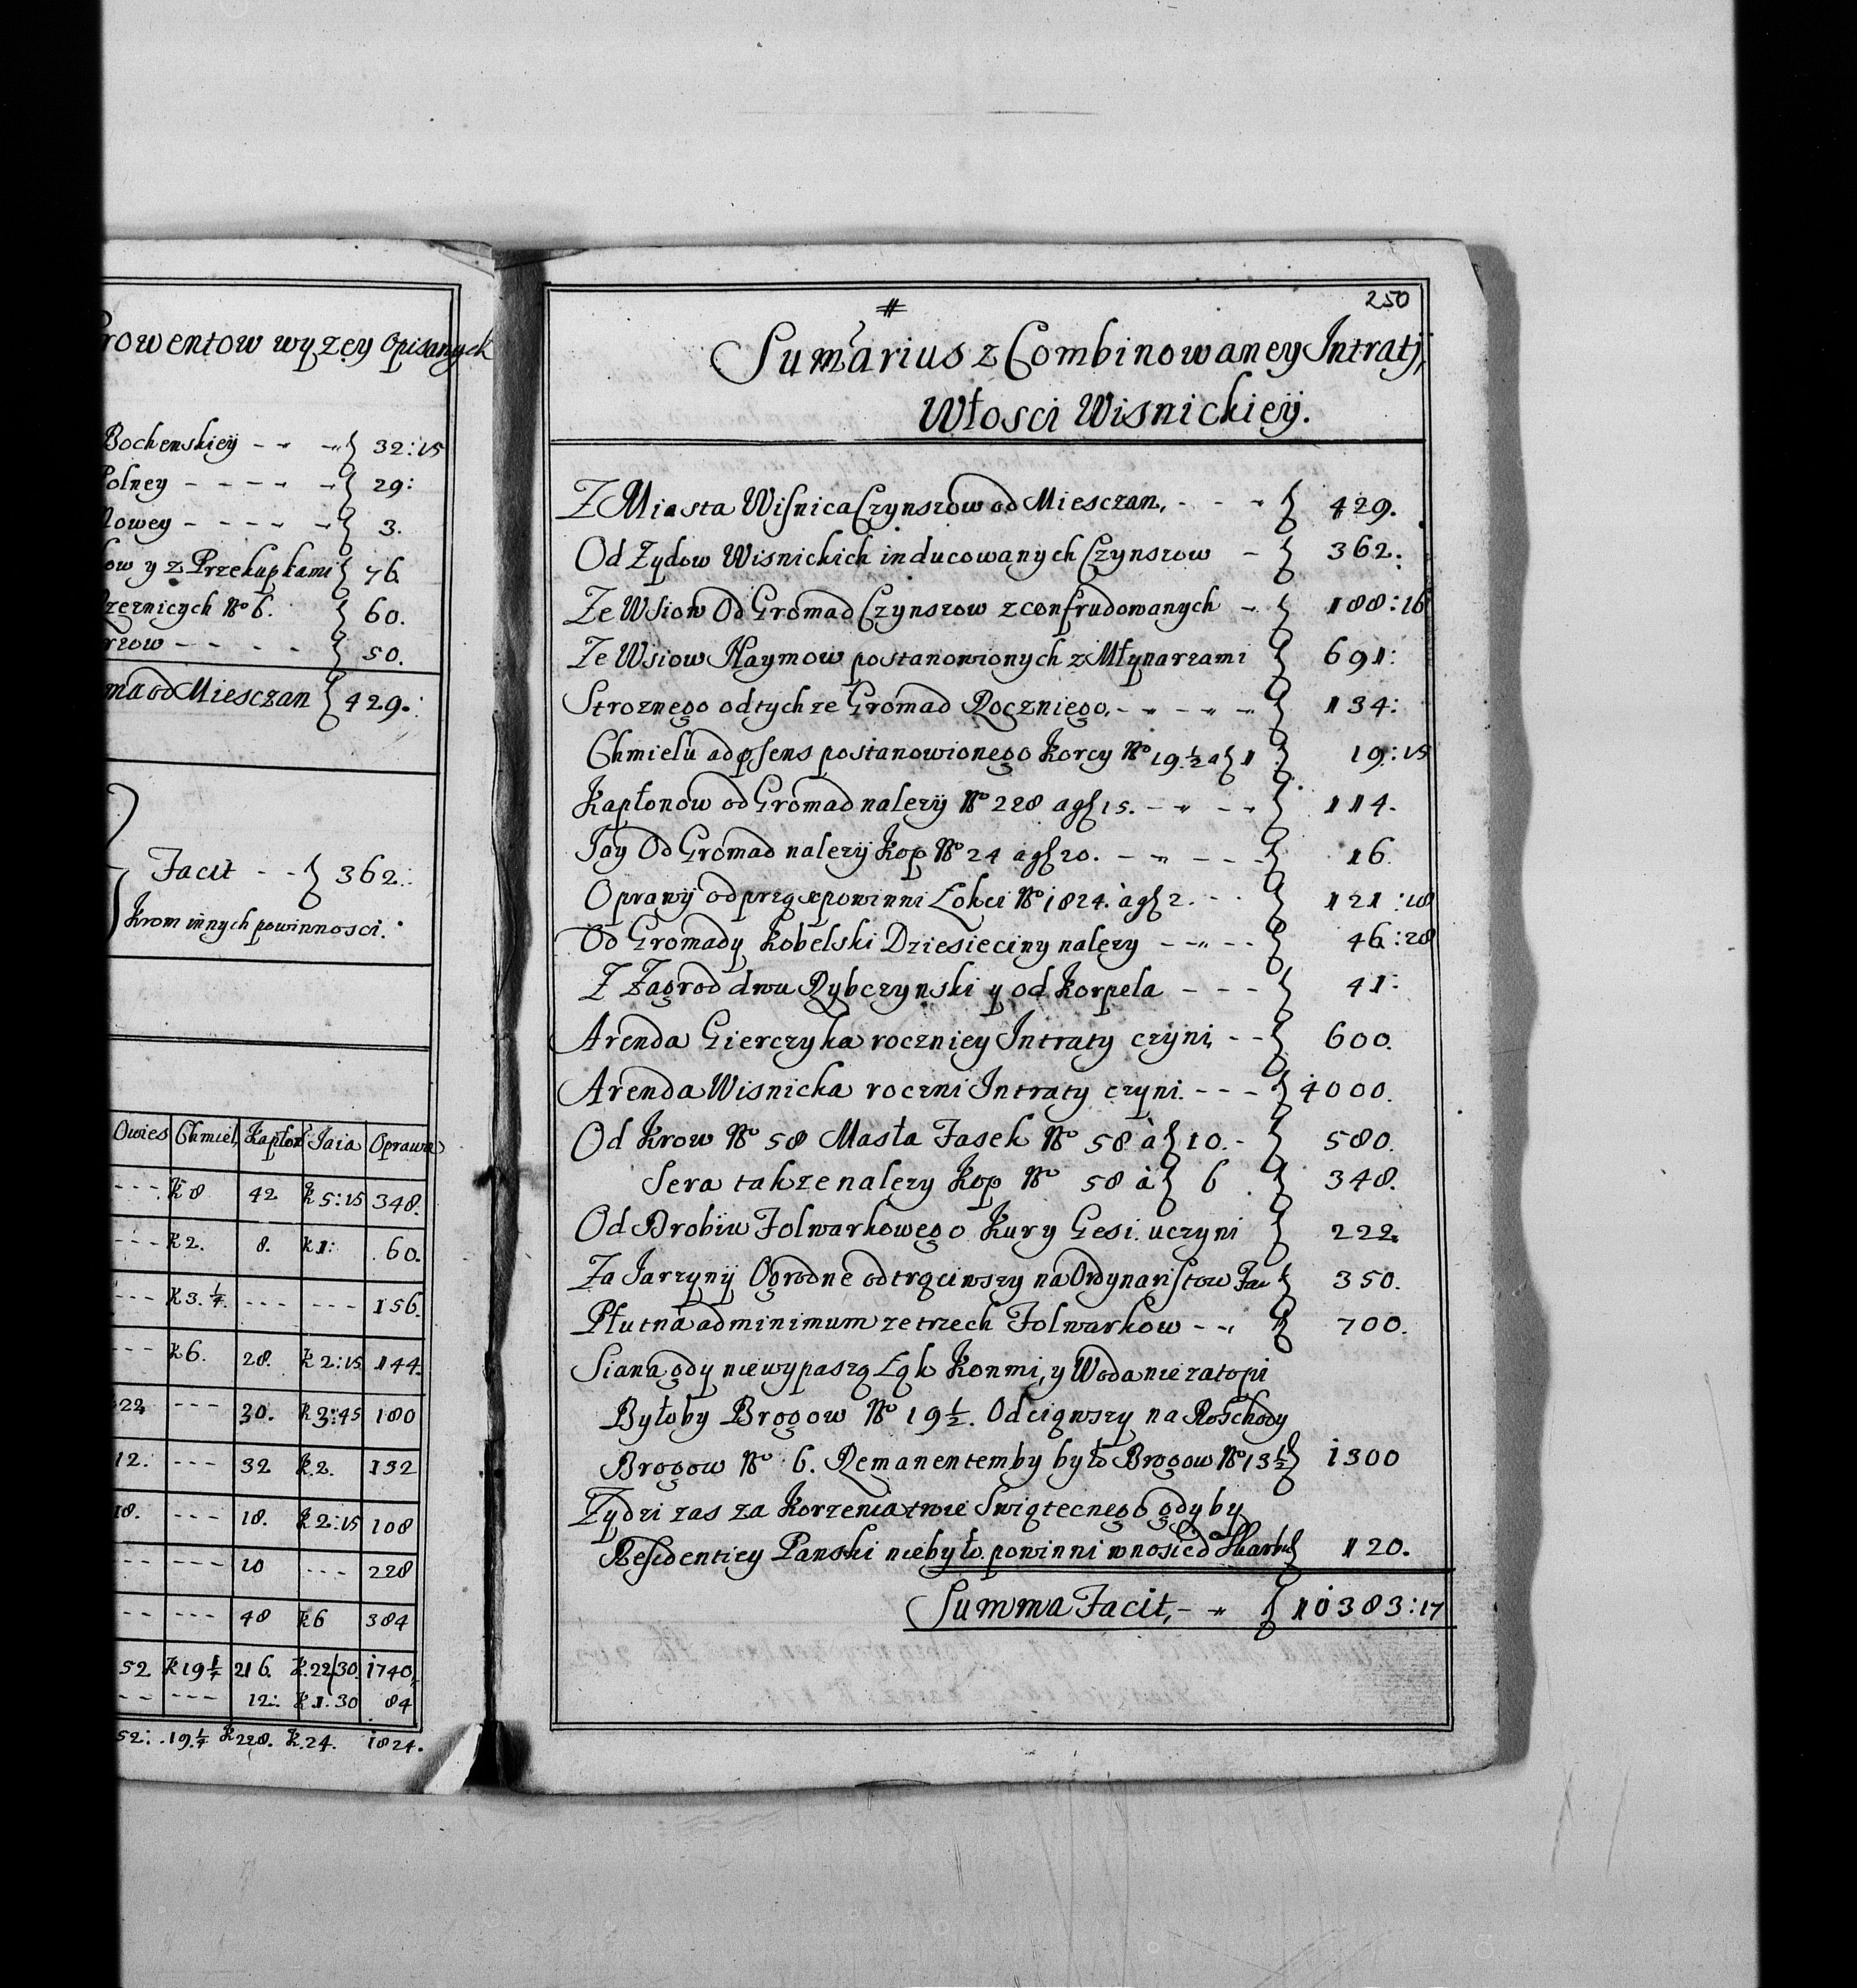 rowentow wyzey opisanych
Bochenskieÿ - - - } 32:15
Polney - - - - - } 29:
Nowey - - - - - } 3.
ow y z Przekupkami } 76
rzeznicych No 6. } 60.
rzow - - - - } 50.
ma od Miesczan } 429.:
Facit - - } 362:.
Krom innych powinnosci.
Owies Chmiel, Kapłon Jaia Oprawa
- - - K 8 42 K 5:15 348.
- - - K 2. 8. K 1: 60.
- - - K 3. 1/4. - - - - - - 156.
- - - K 6. 28. K 2:15 144.
22 - - - 30. K 3:45 180
12: - - - 32 K.2. 132
18. - - - 18. K 2:15 108
- - - - - 10 - - - 228
- - - - - 48 K 6 384
52 K 19 1/4 216. K.22/30. 1740.
- - - - - 12: K 1.30 84
52: .19 1/4 K 228. K.24. 1824.
250
#
Sum̃arius z Combinowaney Intratÿ,
Włosci Wisnickieÿ.
Z Miasta Wisnica Czynszow od Miesczan, - - - } 429.
Od Zydow Wisnickich inducowanych Czynszow - } 362:
Ze Wsiow Od Gromad Czynszow zconfrudowanych - } 188:16
Ze Wsiow Naymow postanowionych z Młynarzami } 691:
Stroznego od tychze Gromad Roczniego, - - - - } 134:
Chmielu ad psens postanowionego Korcy No 19. 1/2 a } 1 } 19:15
Kapłonow od Gromad nalezÿ No 228 a g 15. - - - - } 114.
Jay Od Gromad nalezÿ Kop No 24 a g 20. - - - - - } 16.
Oprawÿ odprząsc powinni Łokci No 1824. à g 2. - - } 121:18
Od Gromady Kobelski Dziesieciny nalezy - - - - } 46:28
Z Zagrod dwu Rybczynski y od Korpela - - - } 41:
Arenda Gierczyka roczniey Intraty czÿni, - - } 600.
Arenda Wisnicka roczni Intraty czyni. - - - } 4000.
Od Krow No 58 Masła Fasek No 58 à } 10. - } 580.
Sera takze nalezy Kop No 58 à } 6 . } 348.
Od Drobiu Folwarkowego Kury Gesi. uczyni } 222.
Za Jarzynÿ Ogrodne odtrąciwszy na Ordynaristow Fac } 350.
Płutna ad minimum ze trzech Folwarkow - - } 700.
Siana gdy nie wypaszą Łąk Konmi, y Woda nie zatopi
Byłoby Brogow No 19 1/2. Odciąwszy na Roschody
Brogow No 6. Remanentem by było Brogow No 13 1/2 } 1300
Zydzi zas za Korzenia Swiątecnego gdyby
Residentiey Panski niebyło. powinni wnosic d Skarbu } 120.
Summa Facit, - - } 10383:17